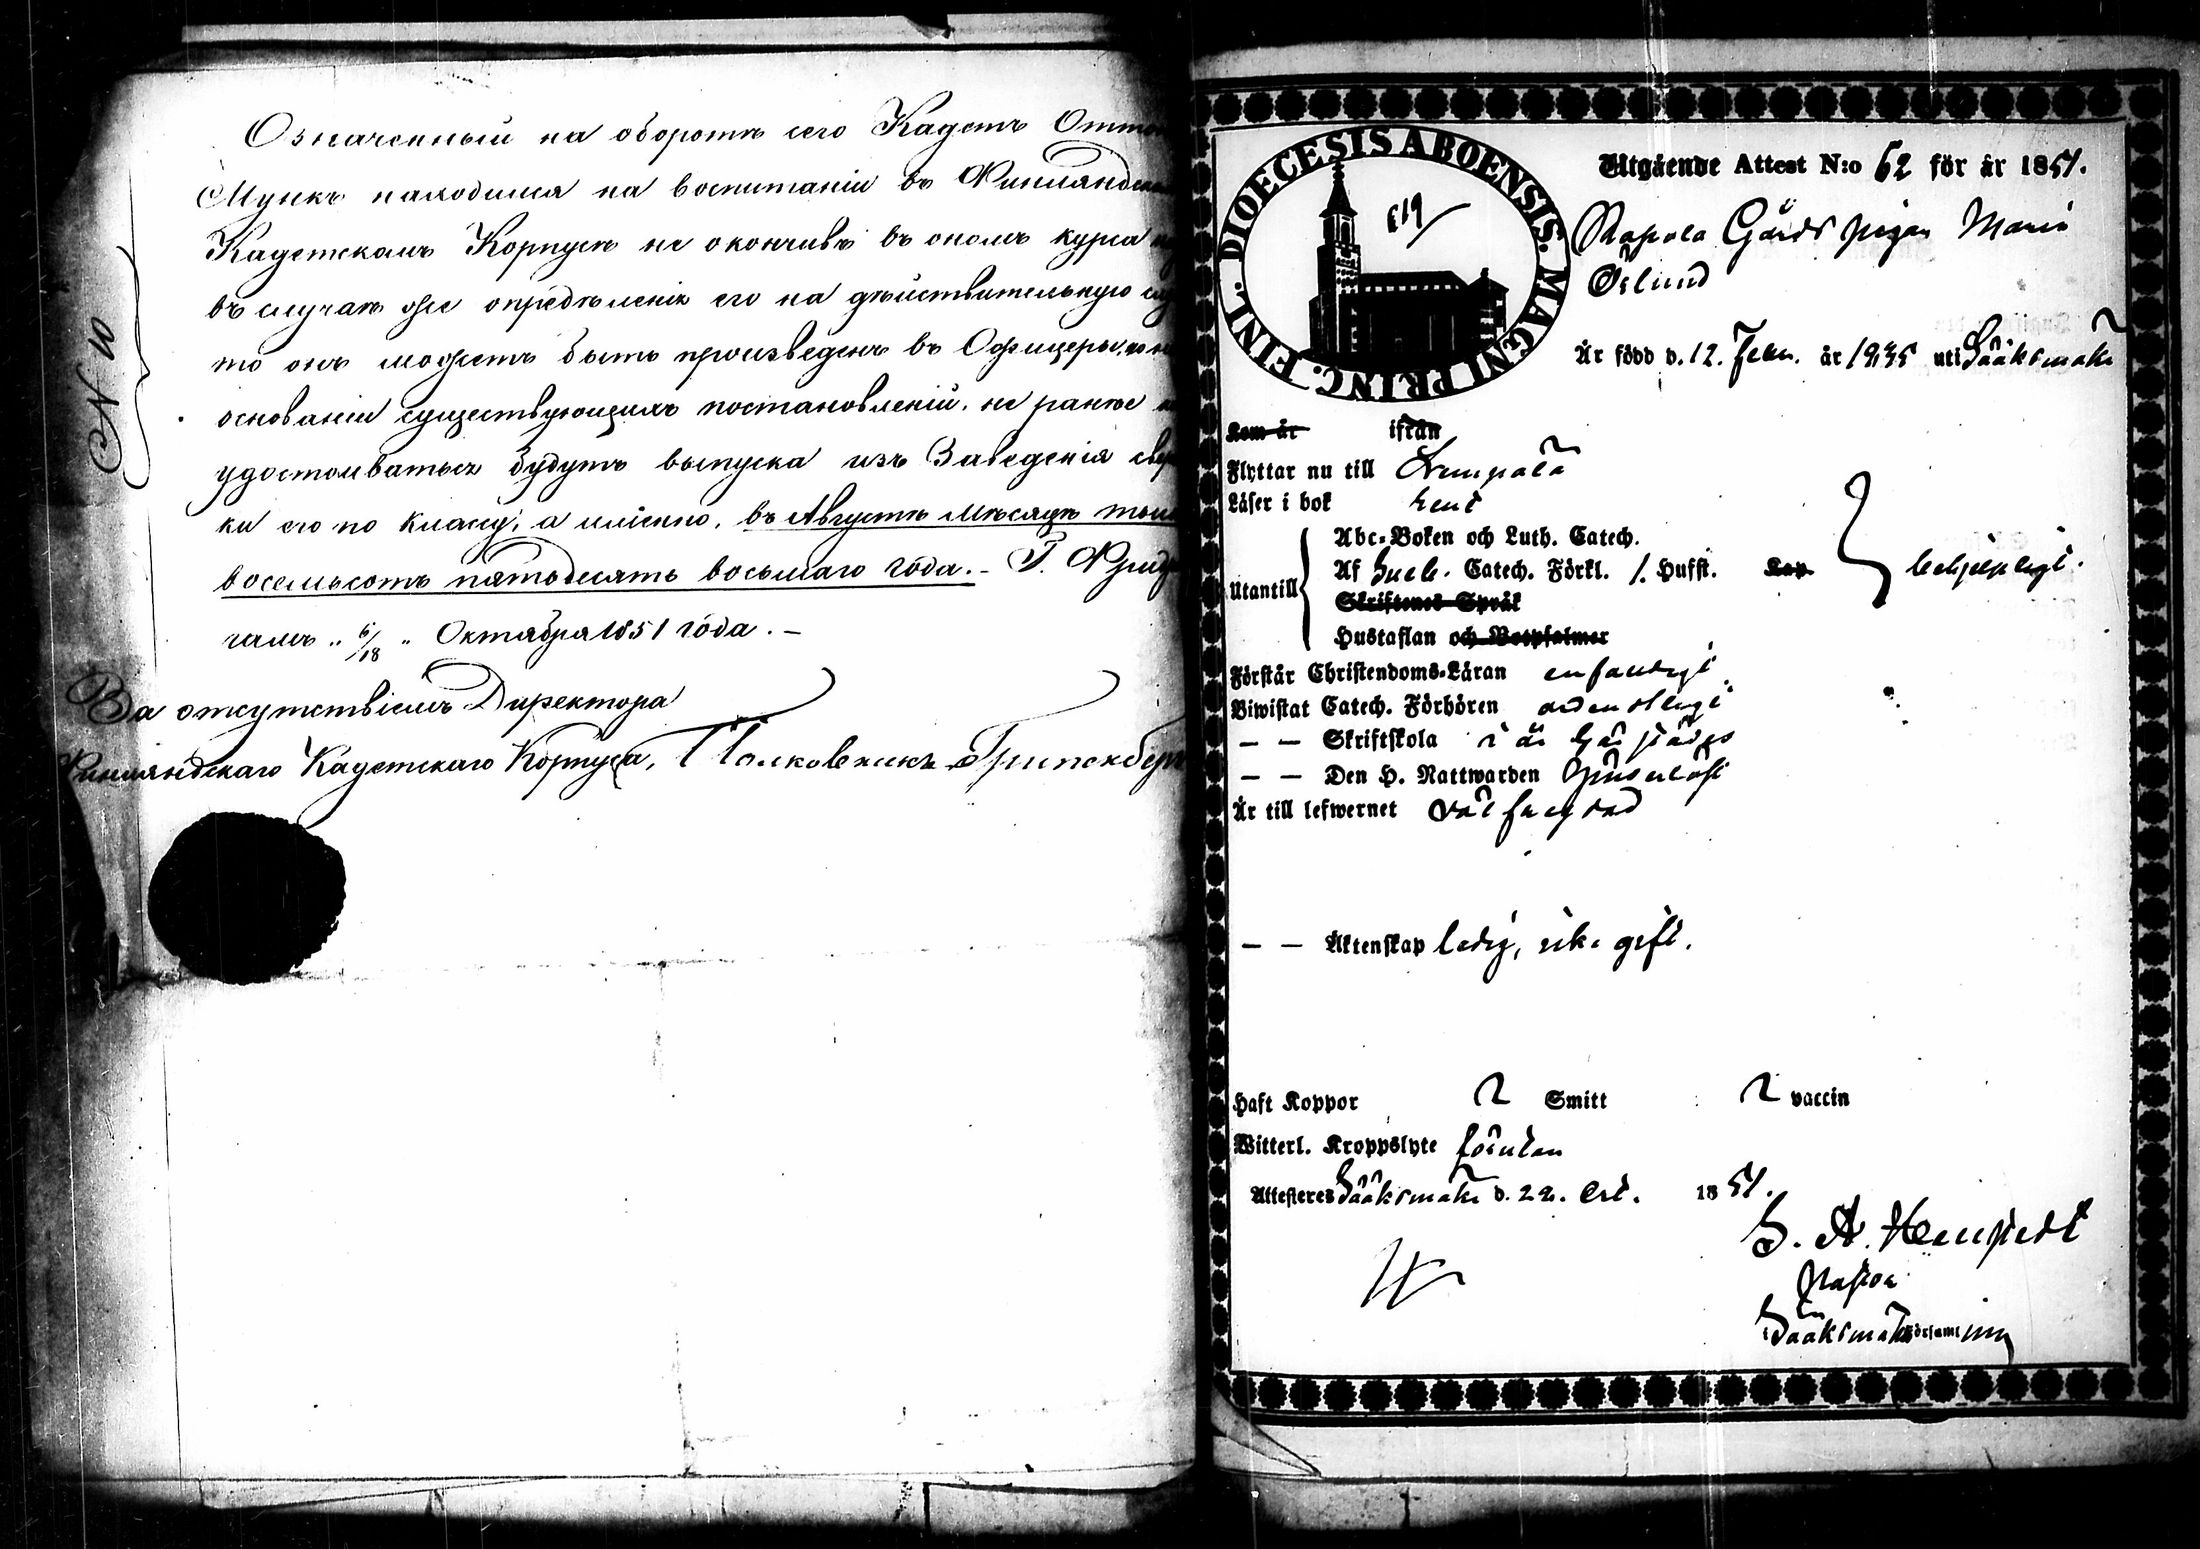 Означенный на оборотѣ сего Кадетъ Отто
Мункъ находился на воспитаніи въ Финляндском
Кадетскомъ Корпусѣ не окончивъ въ ономъ курса
въ случаѣ же опредѣленія его на дѣйствительную
то онъ можетъ быть произведенъ въ Офицеры, по
основаніи существующихъ постановленій, не ранѣе
удостоиваться будутъ выпуска изъ Заведенія свер
ки его по классу, а именно, въ Августѣ мѣсяцѣ тыся
восемьсотъ пятьдесятъ восьмаго года. – Г. Фридр
гамъ „ 6/18 „ Октября 1851 года. –
За отсутствіемъ Директора
Финляндскаго Кадетскаго Корпуса, Полковникъ Грипенберг
N 10
DIOECESIS ABOENSIS. MAGNI PRINC. FINL.
619
Utgående Attest N:o 62 för år 1851.
Rapola Gårds pigan Maria
Öslund
Är född d. 12. Febr. år 1835 uti Sääksmäki
Kom år ifrån
Flyttar nu till Lempälä
Läser i bok rent
Utantill
Abc-Boken och Luth. Catech.
Af Sueb. Catech. Förkl. 1. Hufst. Kap
behjelpligt.
Skriftenes Språk
Hustaflan och Botpsalmer
Förstår Christendoms-Läran enfaldigt
Biwistat Catech. Förhören ordentligt
— — Skriftskola i år härstädes
— — Den H. Nattwarden
Är till lefwernet välfrejdad
— — Äktenskap ledig, icke gift.
Haft Koppor Smitt vaccin
Witterl. Kroppslyte förutan
Attesteres Sääksmäki d. 22. Oct. 1851.
G. A.
Pastor
i Sääksmäki församling